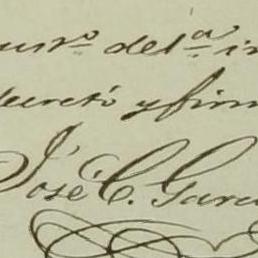 del a
decretó y firm
José C. Garc